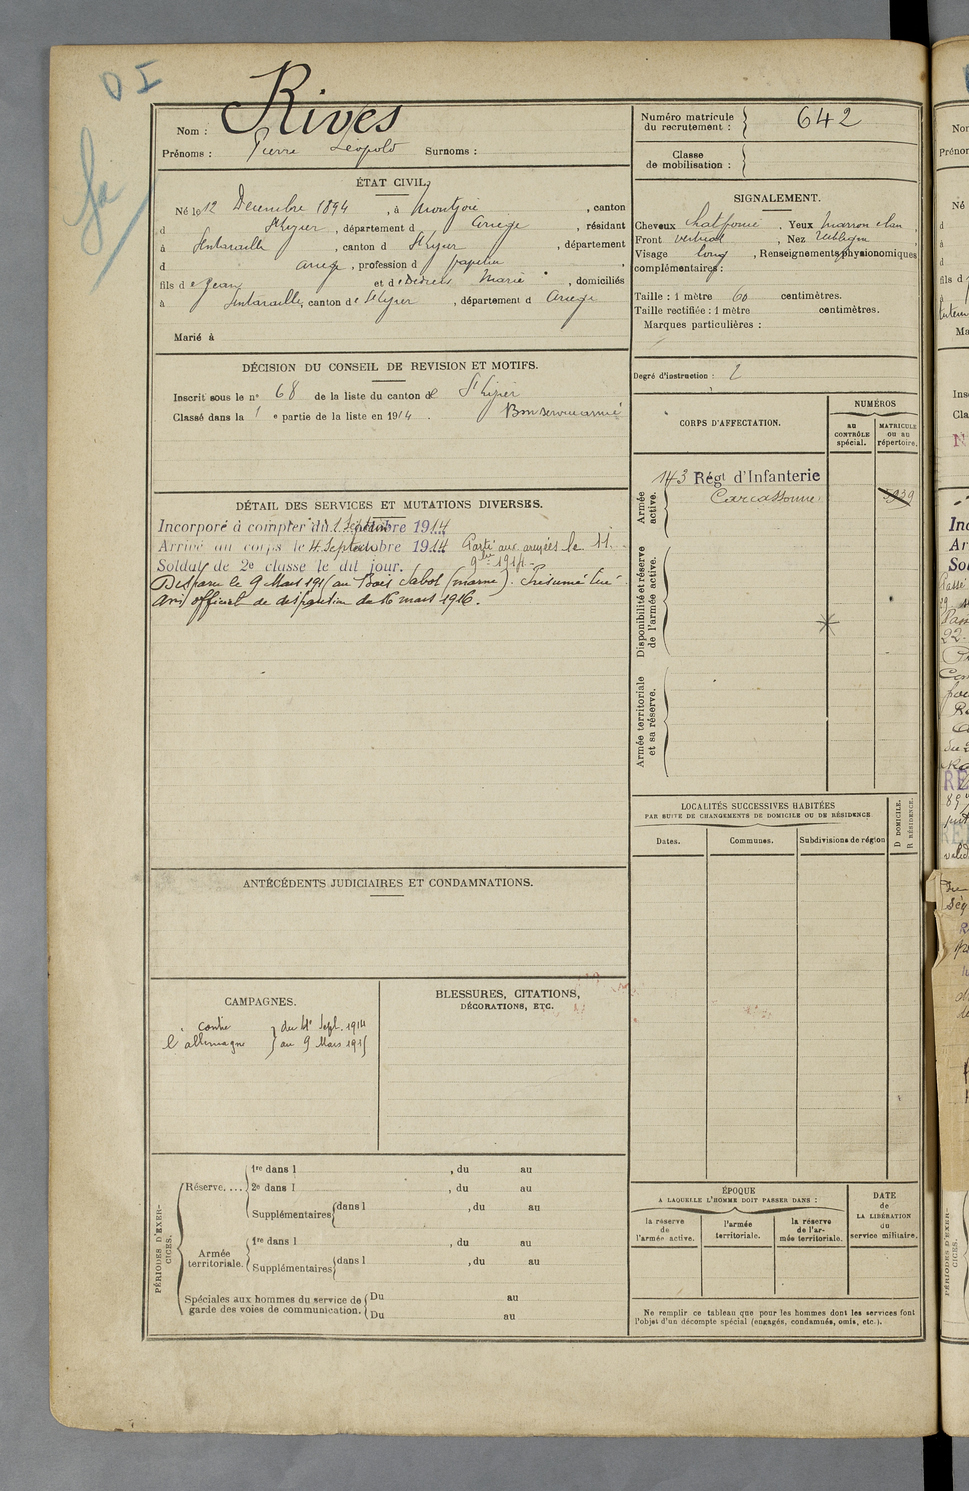 D I
Nom : Rives
Prénoms : Pierre Léopold Surnoms :
Numéro matricule
du recrutement : 642
Classe
de mobilisation :
ÉTAT CIVIL,
Né le 12 Décembre 1894, à Montjoie, canton
d St Lizier, département d Ariège, résidant
à, canton d St Lizier, département
d Ariège, profession d
fils d e Jean et de Marie, domiciliés
à, canton de St Lizier, département d Ariège
Marié à
SIGNALEMENT.
Cheveux chat foncé. Yeux marron clair,
Front vertical, Nez
Visage long, Renseignements physionomiques
complémentaires :
Taille : 1 mètre 60 centimètres.
Taille rectifiée : 1 mètre centimètres.
Marques particulières :
Degré d'instruction : 2
DÉCISION DU CONSEIL DE REVISION ET MOTIFS.
Inscrit sous le n° 68 de la liste du canton de St Lizier
Classé dans la 1 e partie de la liste en 1914. Bon service armé
CORPS D'AFFECTATION.
NUMÉROS
AU
CONTRÔLE
spécial.
MATRICULE
OU AU
répertoire.
Armée
active.
143 Régt d'Infanterie
Carcassonne
5939
Disponibilité et réserve
de l'armée active.
Armée territoriale
et sa réserve.
DÉTAIL DES SERVICES ET MUTATIONS DIVERSES.
Incorporé à compter du Septembre 1914
Arrivé au corps le 4 Septembre 1914 Parti aux armées le 11
Soldat de 2e classe le dit jour. 9bre 1914.
Disparu le 9 Mars 1915 au Bois Sabot (marne). Présumé tué.
Avis officiel de disparition du 16 mars 1916.
LOCALITÉS SUCCESSIVES HABITÉES
PAR SUITE DE CHANGEMENTS DE DOMICILE OU DE RÉSIDENCE
Dates.
Communes.
Subdivisions de région
D DOMICILE.
R RÉSIDENCE.
ANTÉCÉDENTS JUDICIAIRES ET CONDAMNATIONS.
CAMPAGNES.
contre
l'allemagne
du 4 Sept. 1914
au 9 Mars 1915
BLESSURES, CITATIONS,
DÉCORATIONS, ETC.
PÉRIODES D'EXER-
CICES.
Réserve....
1re dans l, du au
2e dans l, du au
Supplémentaires dans l, du au
Armée
territoriale.
1re dans l, du au
Supplémentaires dans l, du au
Spéciales aux hommes du service de
garde des voies de communication.
Du au
Du au
ÉPOQUE
A LAQUELLE L'HOMME DOIT PASSER DANS :
la réserve
de
l'armée active.
l'armée
territoriale.
la réserve
de l'ar-
mée territoriale.
DATE
de
LA LIBÉRATION
du
service militaire.
Ne remplir ce tableau que pour les hommes dont les services font
l'objet d'un décompte spécial (engagés, condamnés, omis, etc.).